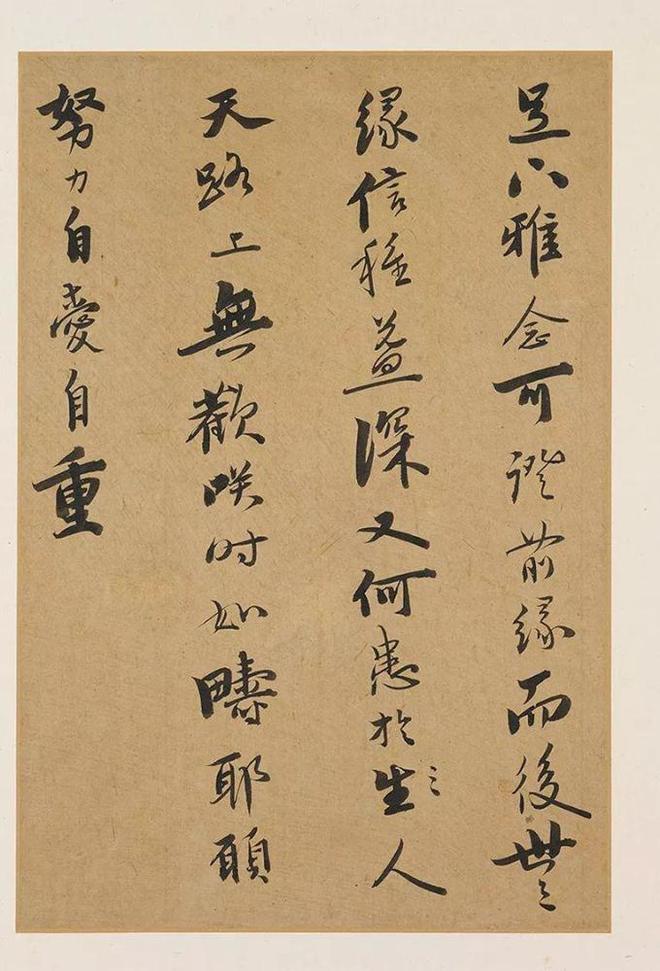 足下雅念可證前緣而後世之
緣信種益深又何患於生々人
天路上無歡咲时如疇耶願
努力自愛自重